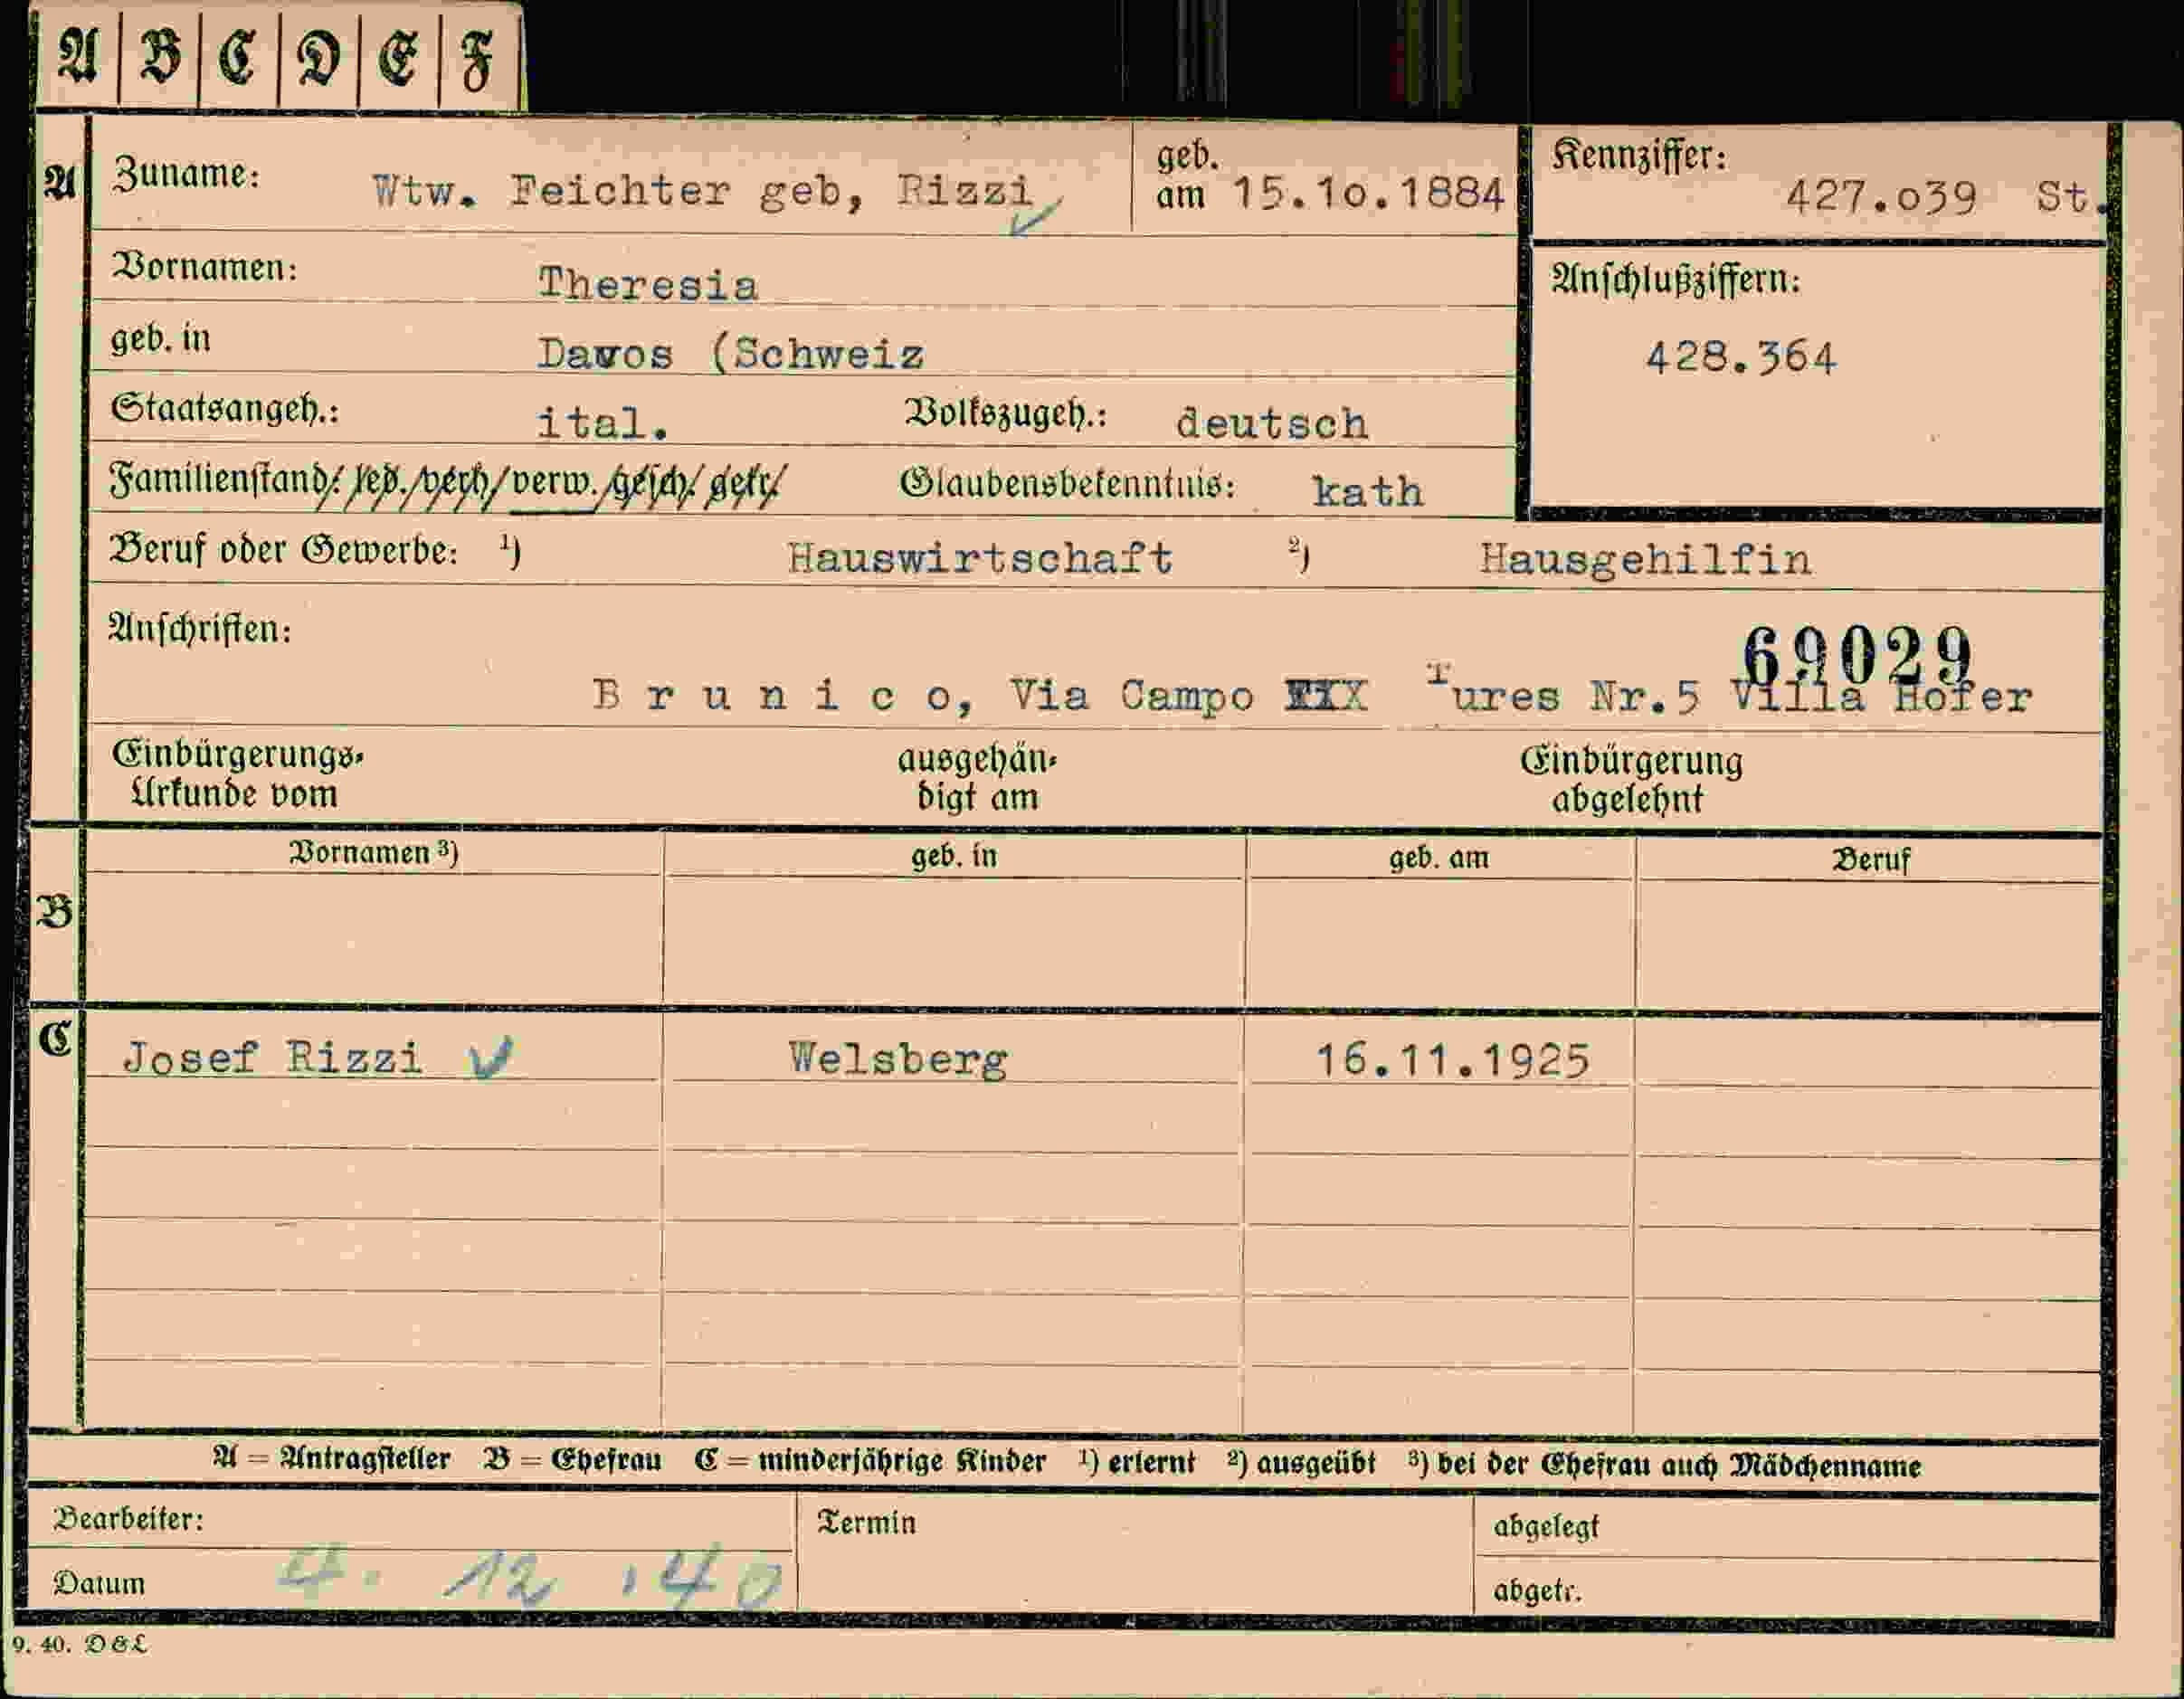 A B C D E F
A Zuname: Wtw. Feichter geb, Rizzi geb. am 15.10.1884 Kennziffer: 427.039 St.
Vornamen: Theresia Anschlußziffern:
geb. in Davos (Schweiz 428.364
Staatsangeh.: ital. Volkszugeh.: deutsch
Familienstand: led./verh/verw./gesch/ getr/ Glaubensbekenntnis: kath
Beruf oder Gewerbe: 1) Hauswirtschaft 2) Hausgehilfin
Anschriften: 69029
B r u n i c o, Via Campo Tures Nr.5 Villa Hofer
Einbürgerungs-Urkunde vom ausgehän-digt am Einbürgerung abgelehnt
Vornamen 3) geb. in geb. am Beruf
B
C Josef Rizzi Welsberg 16.11.1925
A = Antragsteller B = Ehefrau C = minderjährige Kinder 1) erlernt 2) ausgeübt 3) bei der Ehefrau auch Mädchenname
Bearbeiter: Termin abgelegt
Datum 4. 12 .40 abgetr.
9. 40. D&L